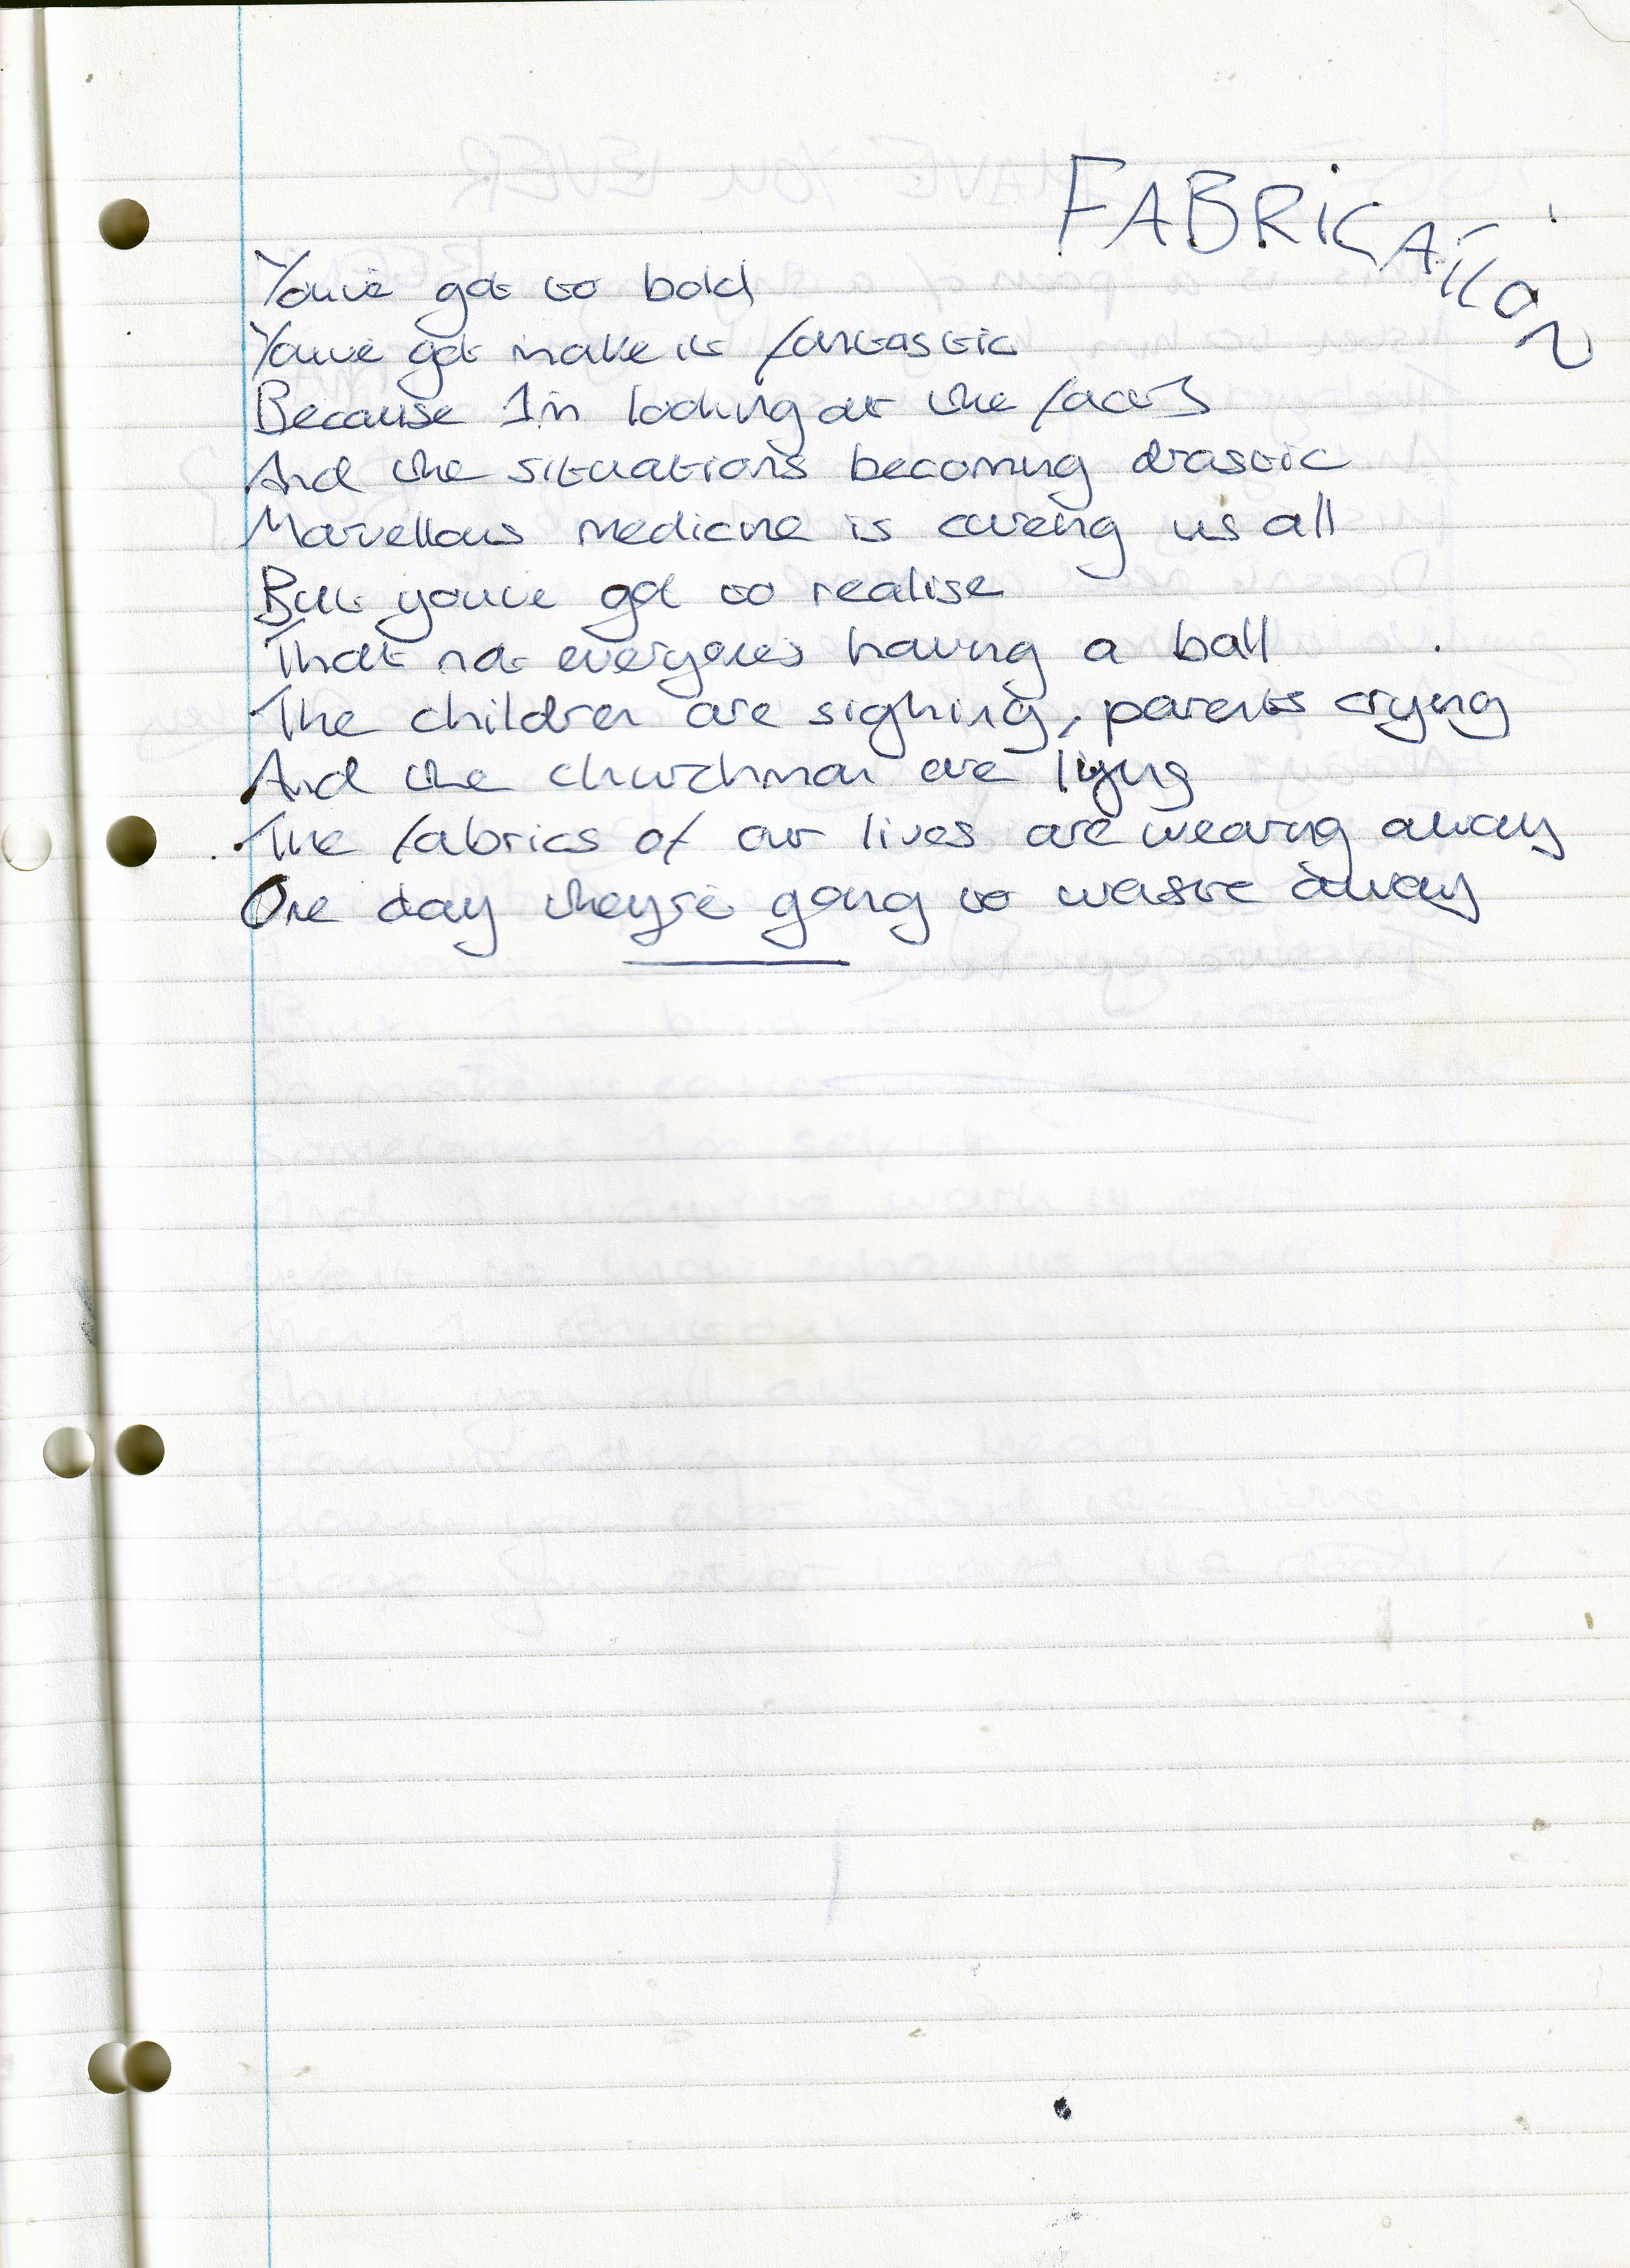 FABRiCATiON
You've got to bold
You've got make it fantastic
Because I'm looking at the facts
And the situations becoming drastic
Marvellous medicine is cureing us all
But you've got to realise
That not everyones having a ball
The children are sighing, parents crying
And the churchman are lying
The fabrics of our lives are wearing away
One day they're going to waste away